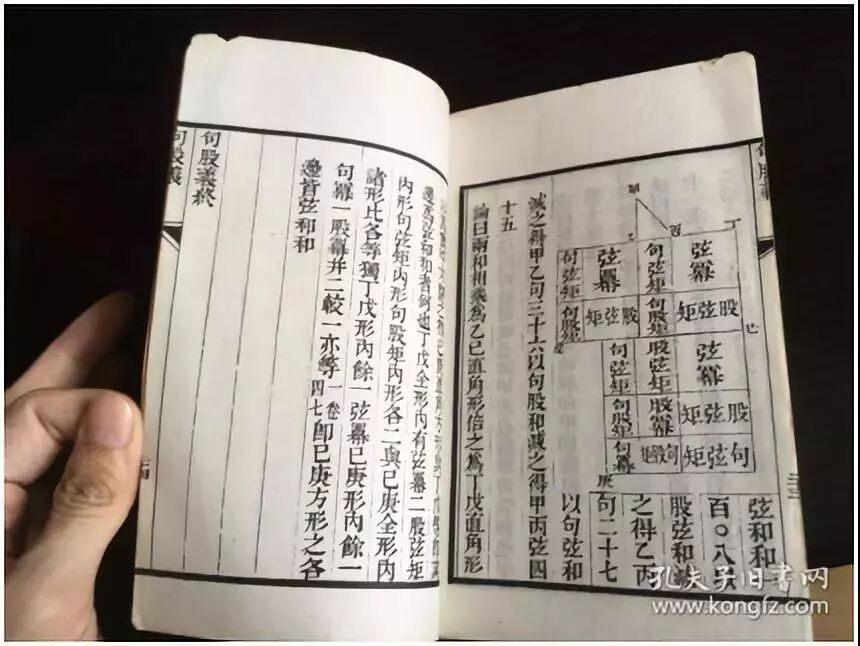 弦和和
百〇八以
股弦和減
之得乙丙
句二十七
以句弦和
減之得甲乙句三十六以句股和減之得甲丙弦四
十五
論曰兩和相乘為乙己直角形倍之為丁戊直角形
甲
丙
乙
丁
己
庚
弦冪
句弦矩
弦冪
句弦矩
股弦矩
句股矩
股弦矩
句股矩
弦冪
股弦矩
句弦矩
股弦矩
股冪
句股矩
句弦矩
句股矩
句冪
內形句弦矩內形句股矩內形各二與己庚全形內
諸形比各等獨丁戊形內餘一弦冪己庚形內餘一
句冪一股冪并二較一亦等一卷四七即己庚方形之各
邊皆弦和和
句股義終
孔夫子旧书网
www.kongfz.com